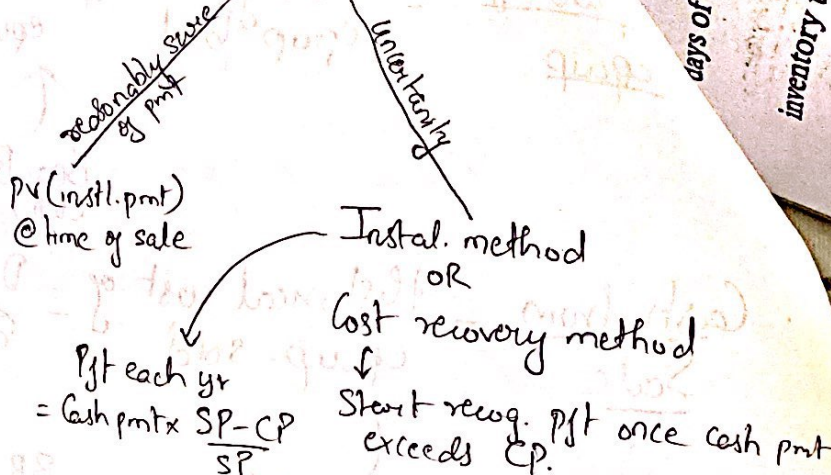 reasonably sure
of pmt
uncertainty
PV (instl. pmt)
@ time of sale
Instal. method
OR
Cost recovery method
Pft each yr
= Cash pmt x SP-CP
SP
Start recog. Pft once cash pmt
exceeds CP.
days of
inventory